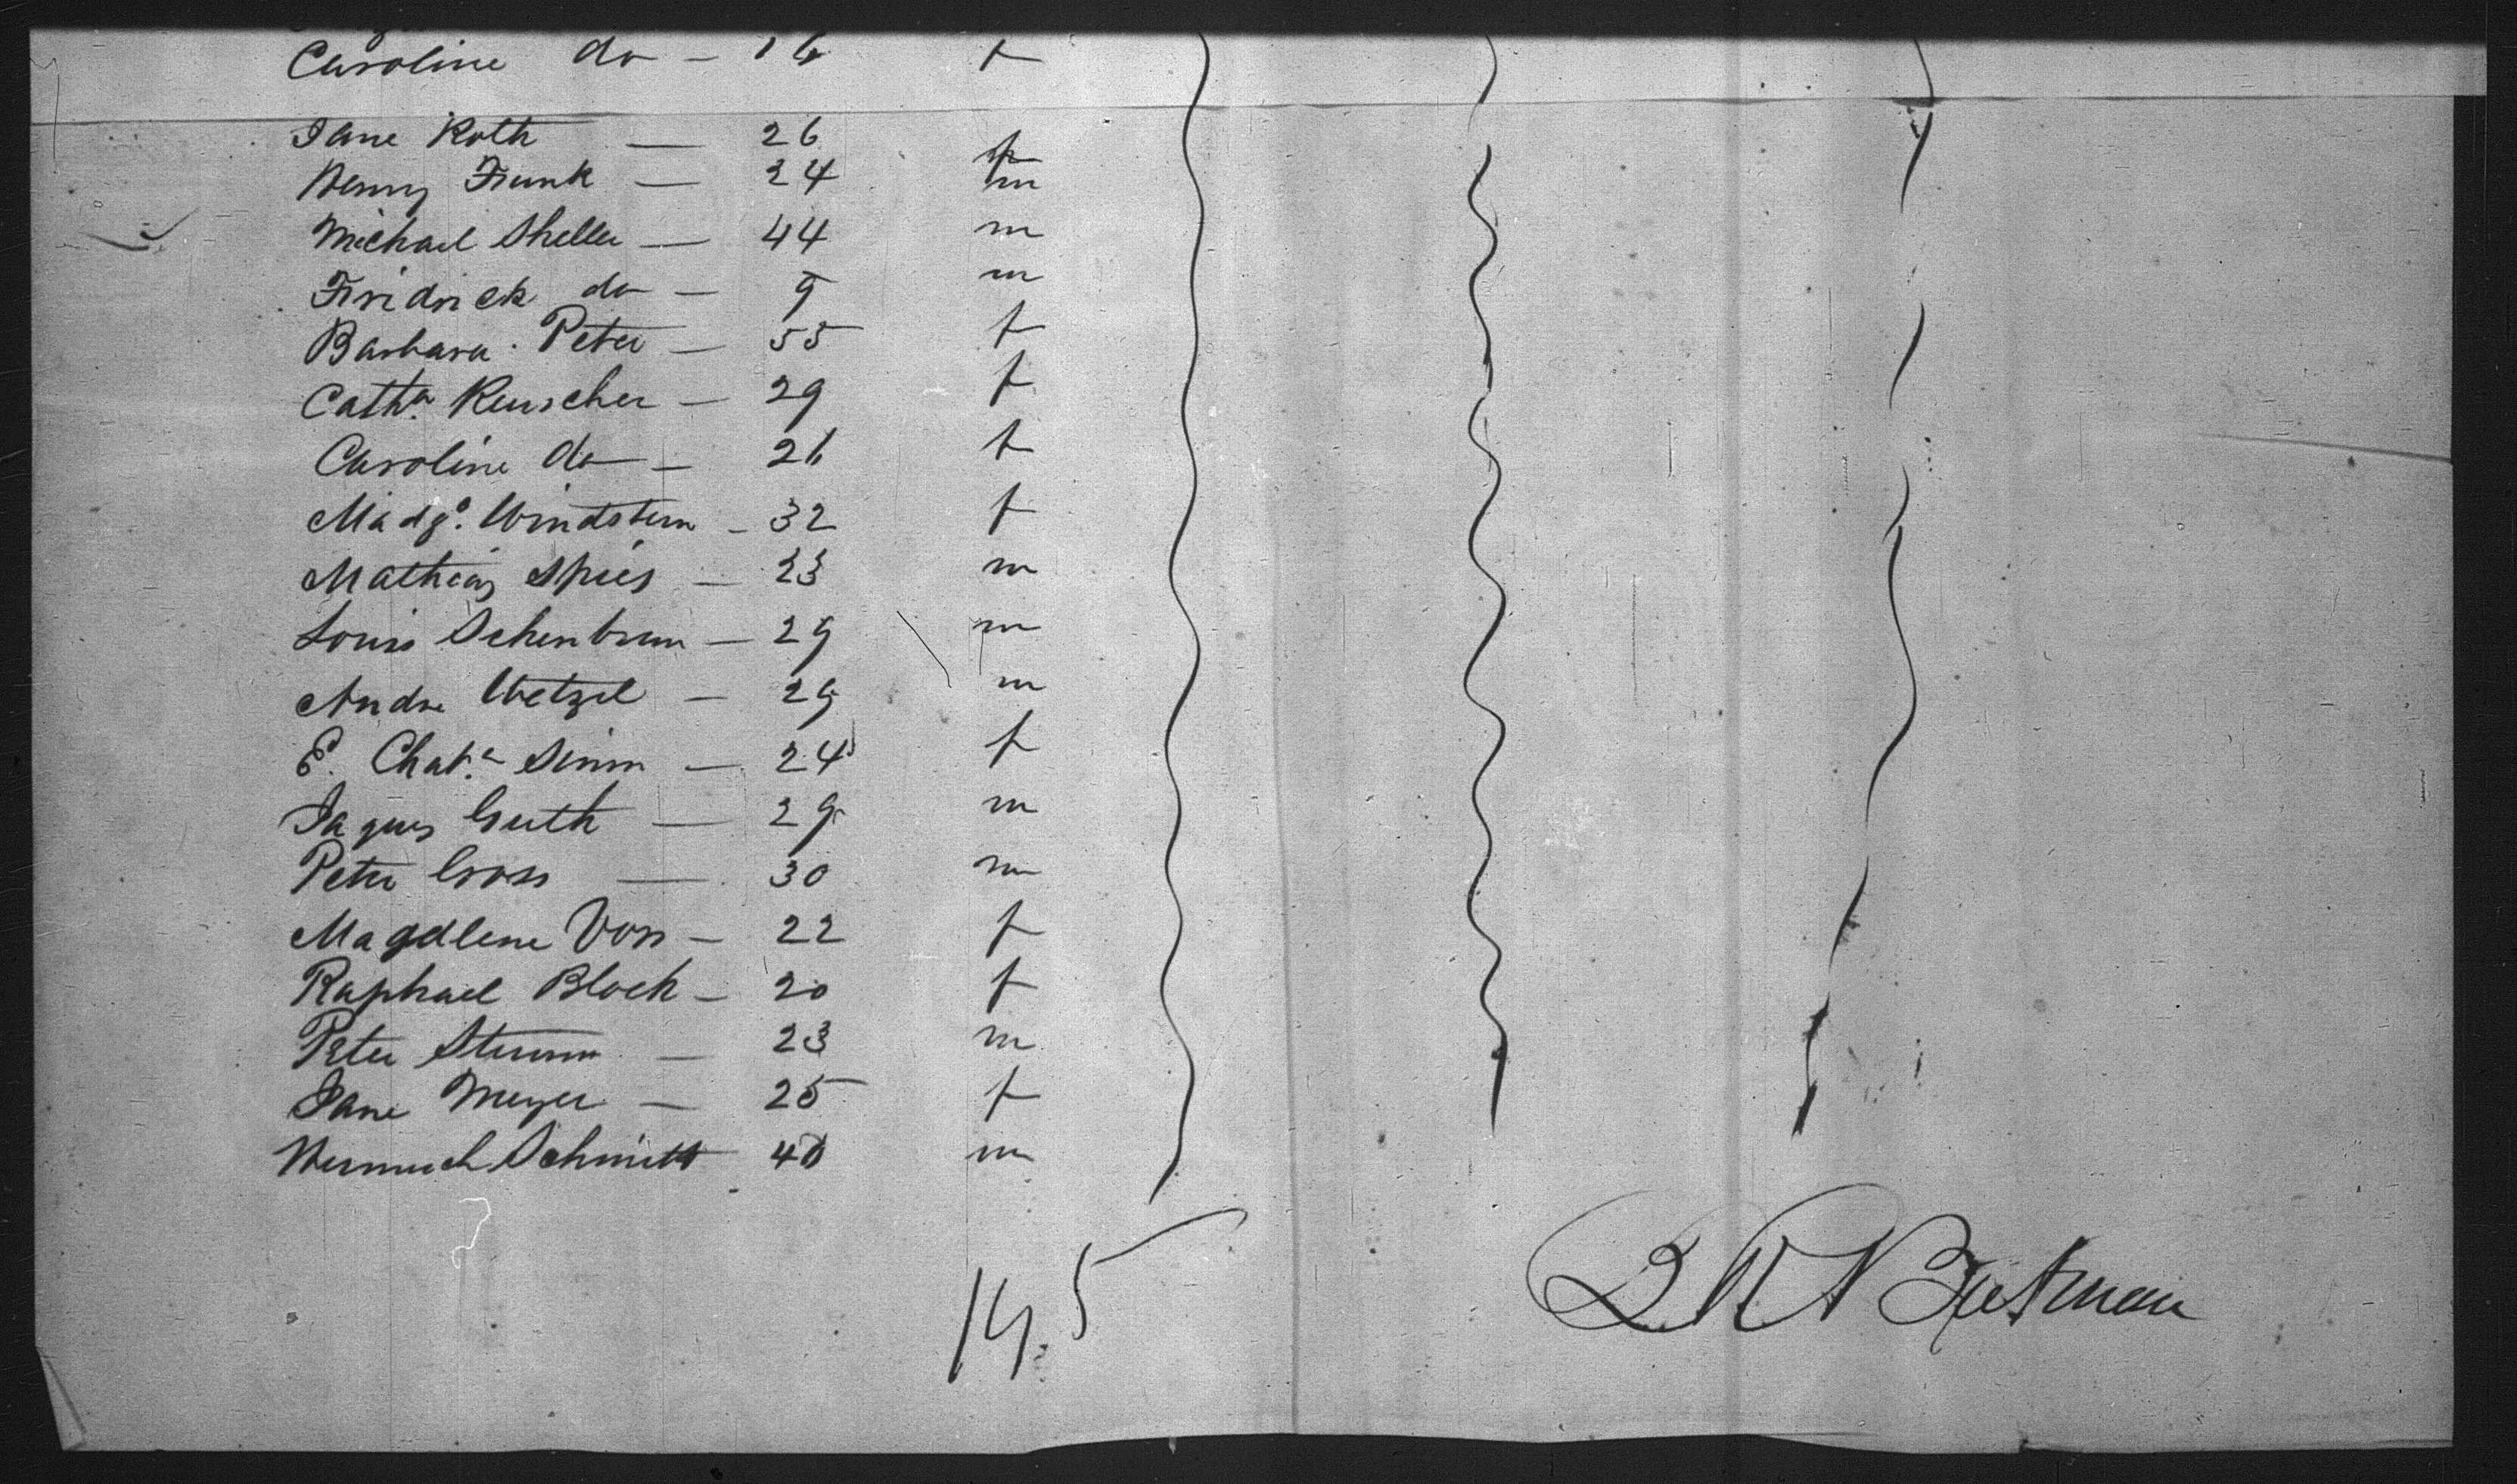 Caroline do - 16 f
Jane Roth — 26 f
Henry Frank — 24 m
Michael Sheller — 44 m
Fridrick do - 9 m
Barbara Peter - 55 f
Cath.a Reuscher - 29 f
Caroline do - 26 f
Madg.e Windstein - 32 f
Mathias Spies - 23 m
Louis Schenbrun - 29 m
Andre Wetzel - 29 m
E. Chat.e Simm - 24 f
Jaques Guth — 29 m
Peter Gross — 30 m
Magdlene Voss - 22 f
Raphael Block - 20 f
Peter Sturm — 23 m
Jane Meyer — 25 f
Schmitt 40 m
145